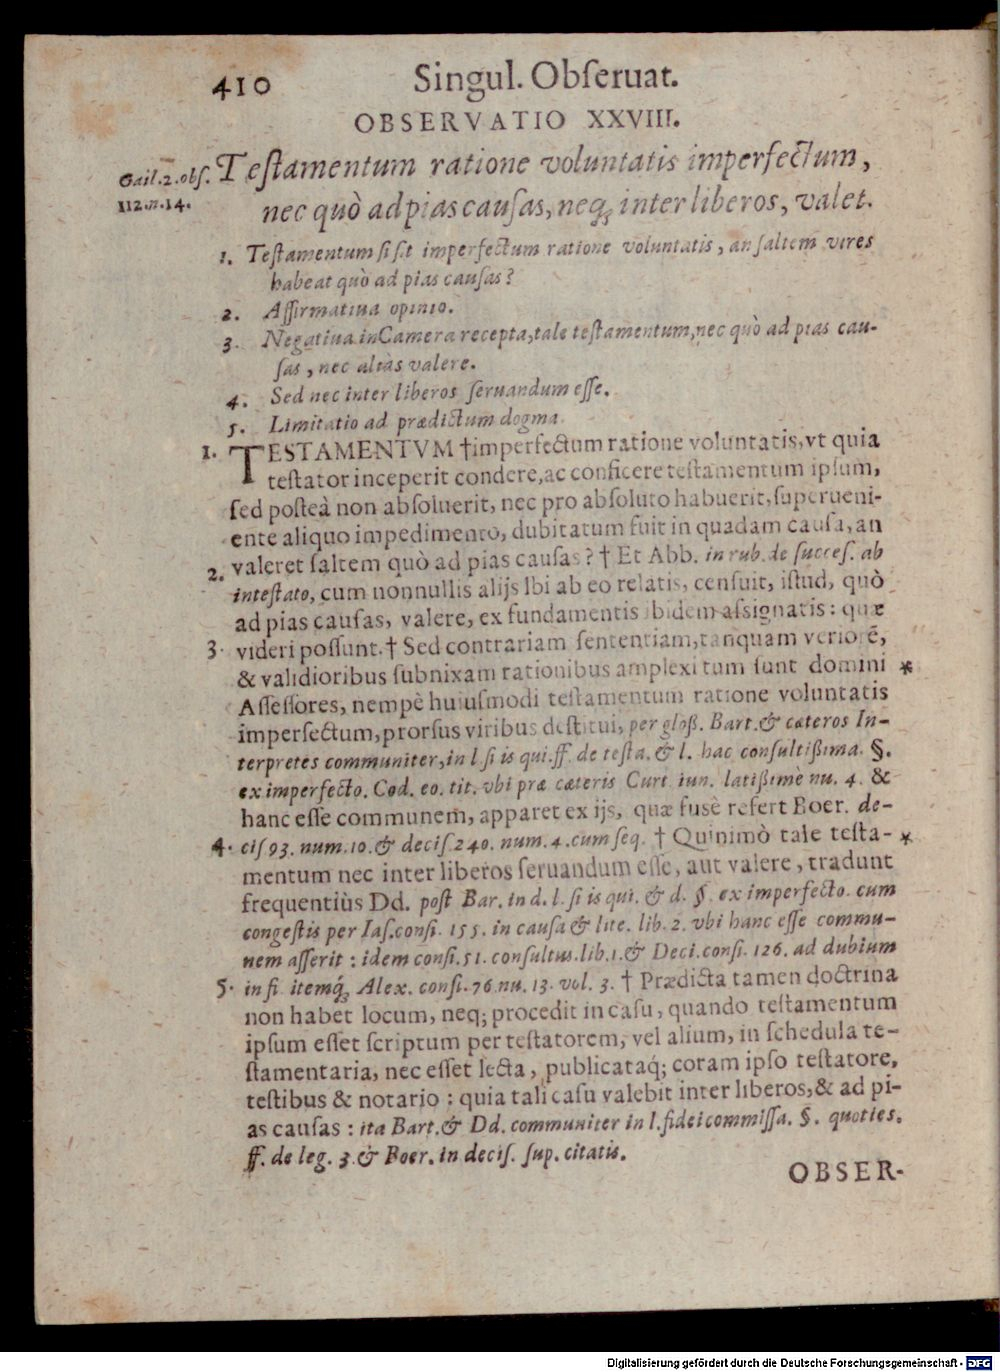 410 Singul. Obſeruat.
OBSERVATIO XXVIII.
Gail. 2. obſ.
112. n. 14.
Teſtamentum ratione voluntatis imperfectum,
nec quò ad pias cauſas, neq; inter liberos, valet.
1. Teſtamentum ſi ſit imperfectum ratione voluntatis, an ſaltem vires
habeat quò ad pias cauſas?
2. Affirmatiua opinio.
3. Negatiua in Camera recepta, tale teſtamentum, nec quò ad pias cau-
ſas, nec aliàs valere.
4. Sed nec inter liberos ſeruandum eſſe.
5. Limitatio ad prædictum dogma.
1. TESTAMENTVM †imperfectum ratione voluntatis, vt quia
teſtator inceperit condere, ac conficere teſtamentum ipſum,
ſed poſteà non abſoluerit, nec pro abſoluto habuerit, ſuperueni-
ente aliquo impedimento, dubitatum fuit in quadam cauſa, an
valeret ſaltem quò ad pias cauſas? † Et Abb. in rub. de ſucceſ. ab
2. inteſtato, cum nonnullis alijs Ibi ab eo relatis, cenſuit, iſtud, quò
ad pias cauſas, valere, ex fundamentis ibidem aſsignatis: quæ
3. videri poſſunt. † Sed contrariam ſententiam, tanquam veriorē,
& validioribus ſubnixam rationibus amplexi tum ſunt domini *
Aſſeſſores, nempè huiuſmodi teſtamentum ratione voluntatis
imperfectum, prorſus viribus deſtitui, per gloß. Bart. & cæteros In-
terpretes communiter, in l. ſi is qui. ff. de teſta. & l. hac conſultißima. §.
ex imperfecto. Cod. eo. tit. vbi præ cæteris Curt. iun. latißimè nu. 4. &
hanc eſſe communem, apparet ex ijs, quæ fusè refert Boer. de-
4. ciſ 93. num. 10. & deciſ. 240. num. 4. cum ſeq. † Quinimò tale teſta- *
mentum nec inter liberos ſeruandum eſſe, aut valere, tradunt
frequentiùs Dd. poſt Bar. in d. l. ſi is qui. & d. §. ex imperfecto. cum
congeſtis per Iaſ. conſi. 155. in cauſa & lite. lib. 2. vbi hanc eſſe commu-
nem aſſerit: idem conſi. 51. conſultus. lib. 1. & Deci. conſi. 126. ad dubium
5. in fi. itemq́; Alex. conſi. 76. nu. 13. vol. 3. † Prædicta tamen doctrina
non habet locum, neq; procedit in caſu, quando teſtamentum
ipſum eſſet ſcriptum per teſtatorem, vel alium, in ſchedula te-
ſtamentaria, nec eſſet lecta, publicataq́; coram ipſo teſtatore,
teſtibus & notario: quia tali caſu valebit inter liberos, & ad pi-
as cauſas: ita Bart. & Dd. communiter in l. fideicommiſſa. §. quoties.
ff. de leg. 3. & Boer. in deciſ. ſup. citatis.
OBSER-
Digitalisierung gefördert durch die Deutsche Forschungsgemeinschaft - DFG